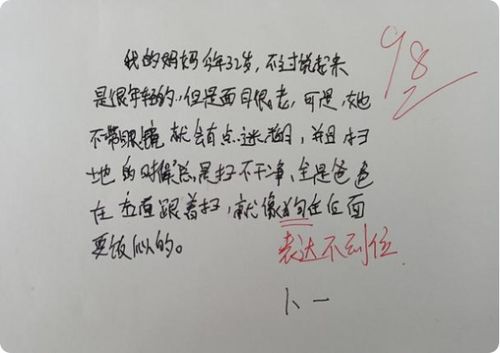 我的妈妈今年32岁，不过说起来
是很年轻的，但是面目很老，可是，她
不带眼镜就会有点迷茫，并且扫
地的时候总是扫不干净，全是爸爸
在右面跟着扫，就像狗在后面
要饭似的。
98
表达不到位
卜一